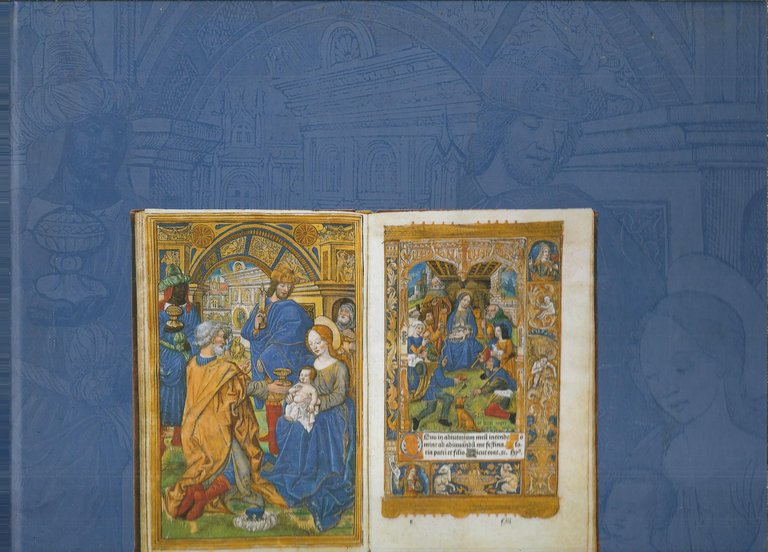 Deus in adiutorium meū intende Do
mine ad adiuuandū me festina. Glo
ria patri et filio. Sicut erat.